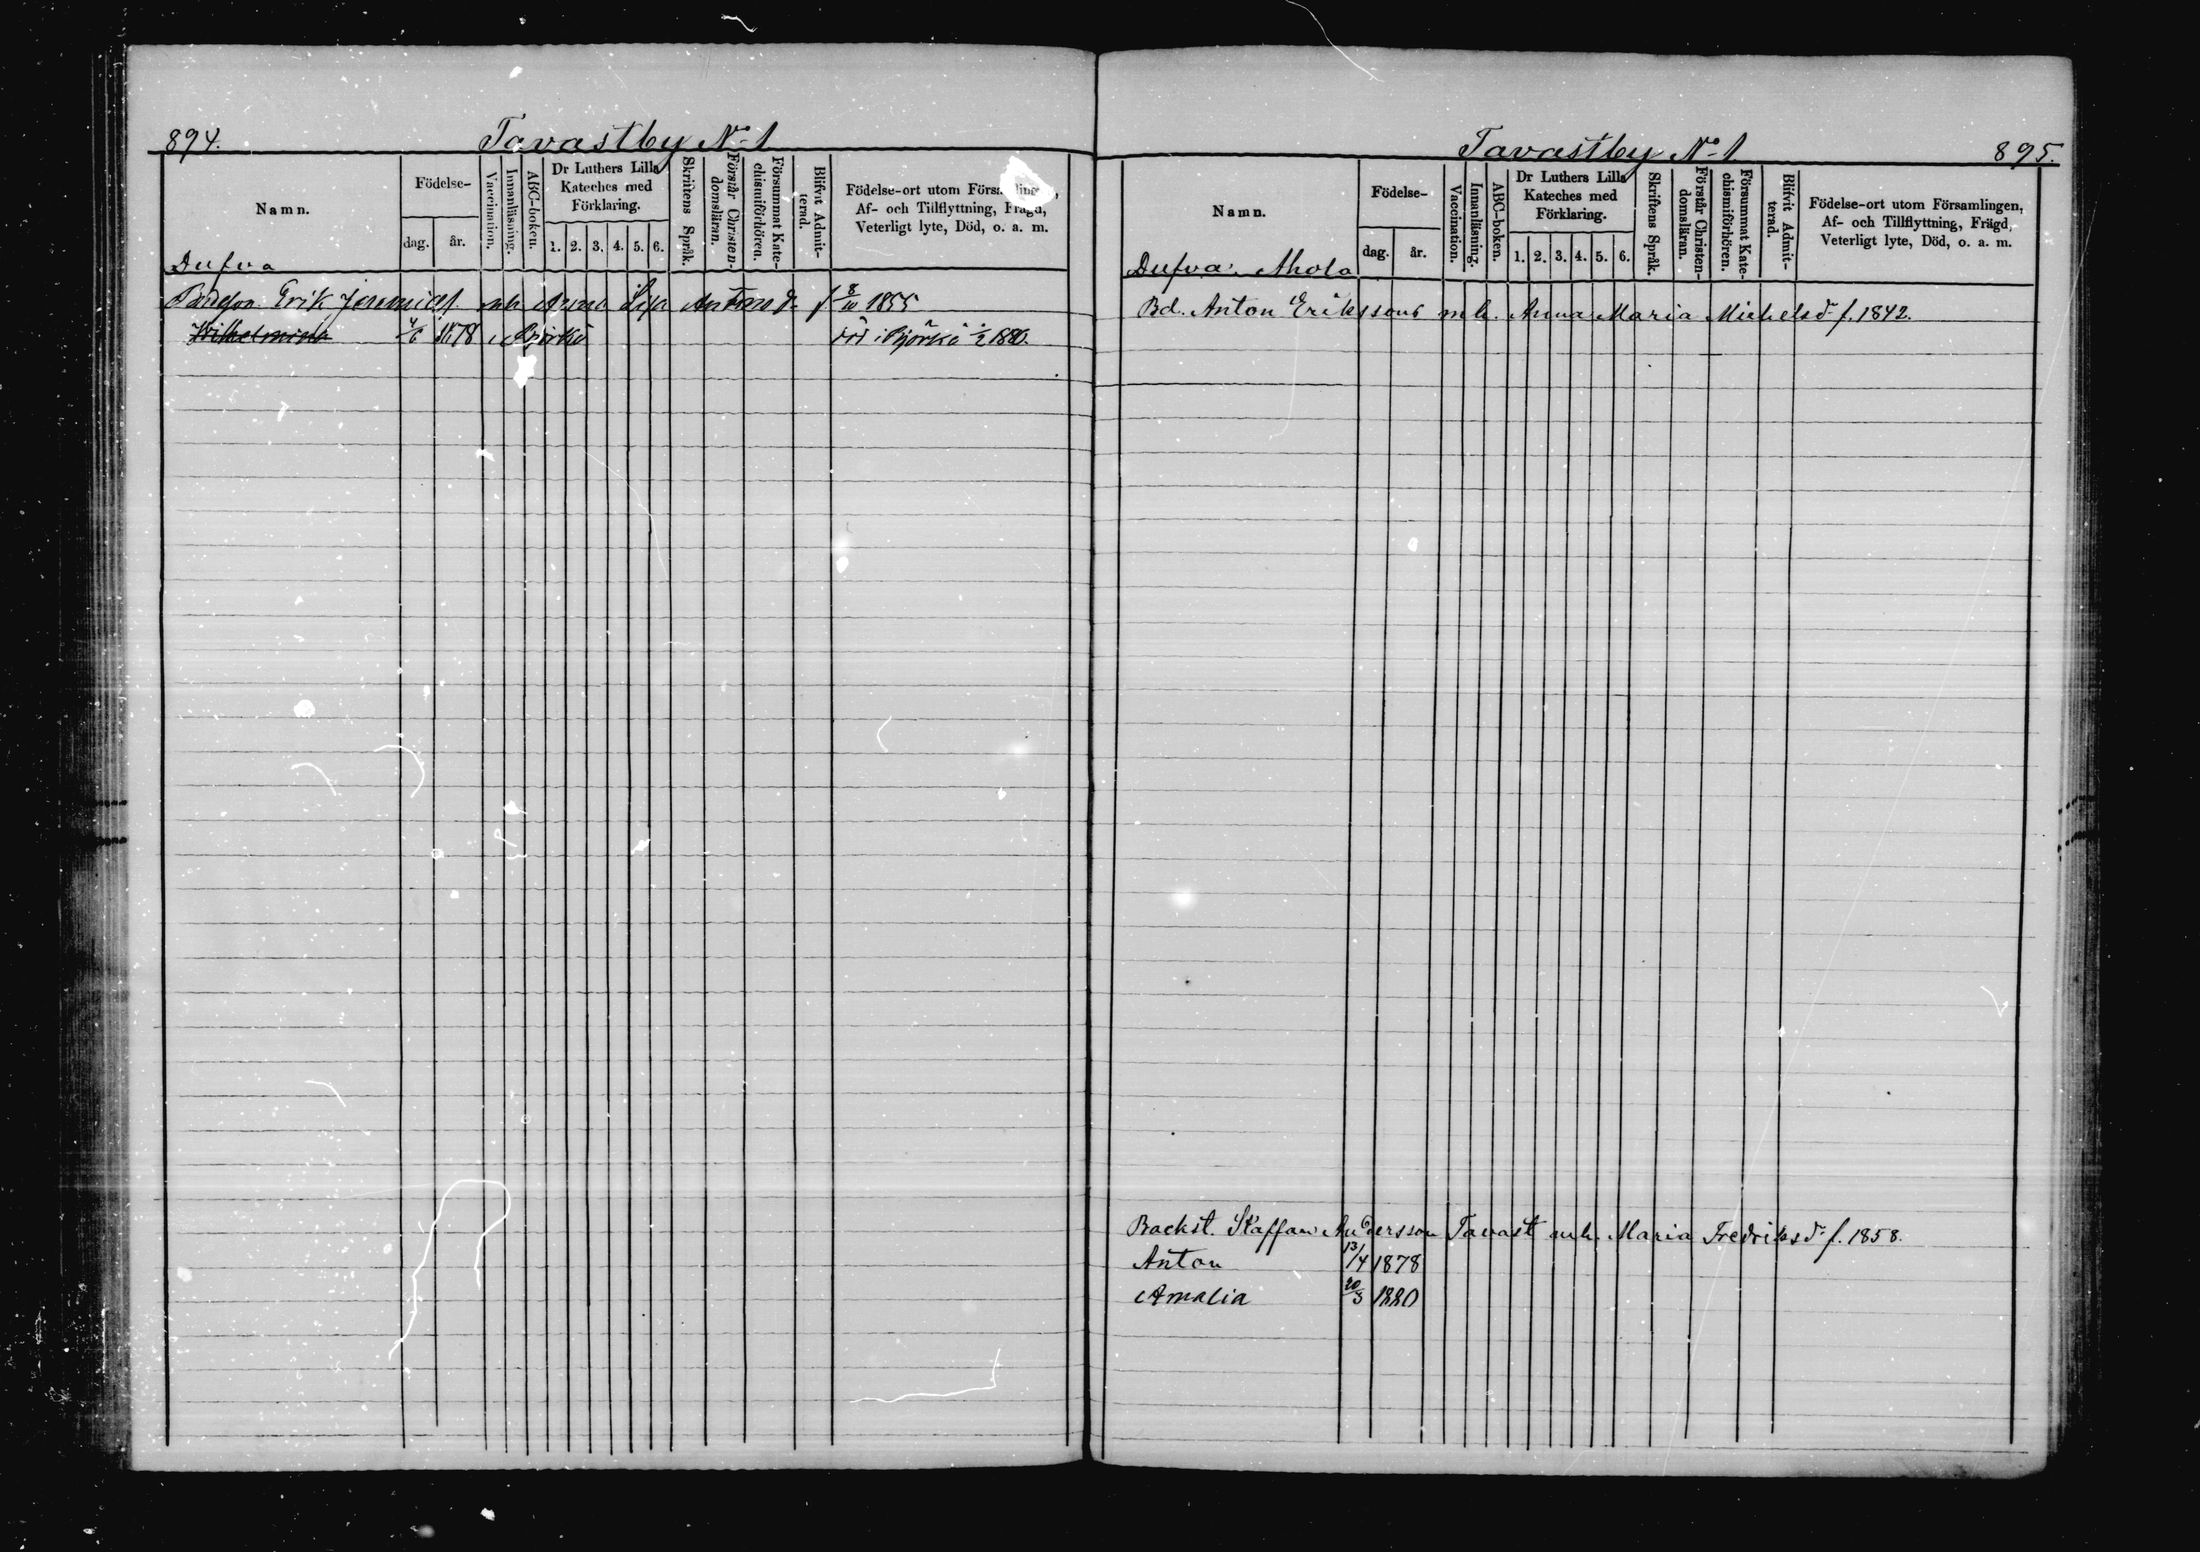 894.
Tavastby No 1
Namn.
Födelse-
dag. år.
Vaccination.
Innanläsning.
ABC-boken.
Dr Luthers Lilla
Kateches med
Förklaring.
1. 2. 3. 4. 5. 6.
Skriftens Språk.
Förstår Christen-
domsläran.
Försummat Kate-
chismiförhören.
Blifvit Admit-
terad.
Födelse-ort utom
Af- och Tillflyttning, Frägd,
Veterligt lyte, Död, o. a. m.
Dufva
Erik mh Anna Lisa Antonsd. f 1855
Wilhelmina 4/6 1878 i Björkö död i Björkö 1/2 1880.
Tavastby No 1
895.
Namn.
Födelse-
dag. år.
Vaccination.
Innanläsning.
ABC-boken.
Dr Luthers Lilla
Kateches med
Förklaring.
1. 2. 3. 4. 5. 6.
Skriftens Språk.
Förstår Christen-
domsläran.
Försummat Kate-
chismiförhören.
Blifvit Admit-
terad.
Födelse-ort utom Församlingen,
Af- och Tillflyttning, Frägd,
Veterligt lyte, Död, o. a. m.
Dufva. Ahola
Bd. Anton Erikssons mh. Anna Maria Michelsd. f. 1842.
Backst. Staffan Andersson Tavast mh. Maria Fredriksd. f. 1858.
Anton 13/4 1878
Amalia 20/3 1880